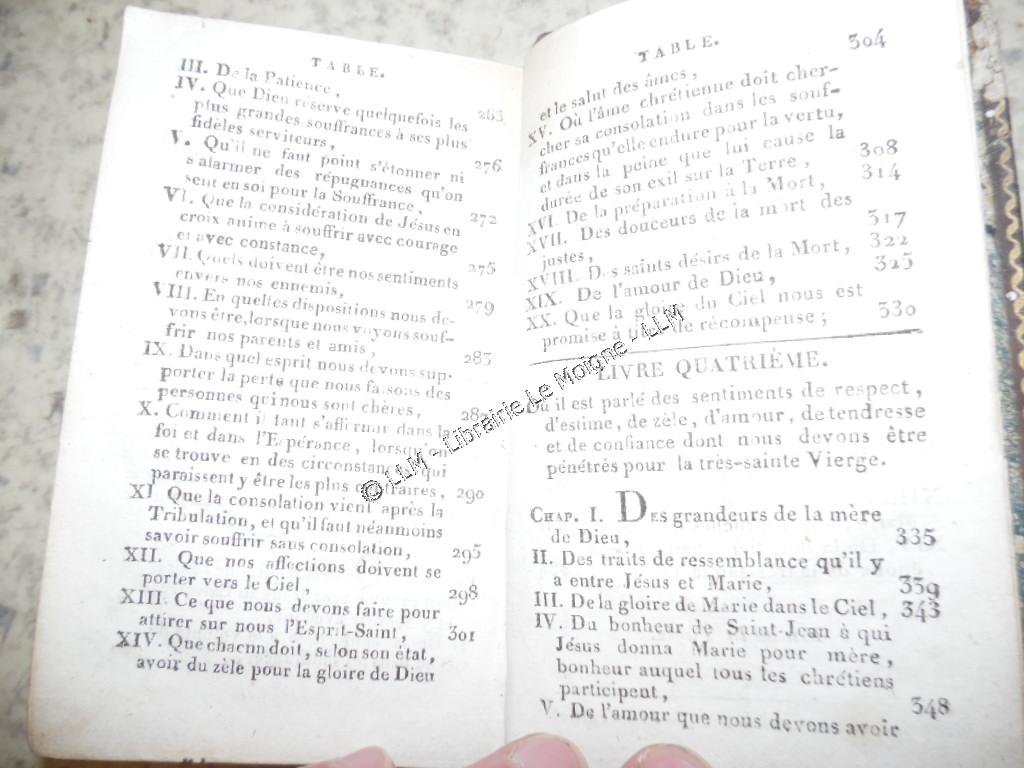 TABLE.
III. De la Patience,
IV. Que Dieu réserve quelquefois les 263
plus grandes souffrances à ses plus
fidèles serviteurs,
V. Qu'il ne faut point s'étonner ni 276
s'alarmer des répugnances qu'on
sent en soi pour la Souffrance, 272
VI. Que la considération de Jésus en
croix anime à souffrir avec courage
et avec constance, 275
VII. Quels doivent être nos sentiments
envers nos ennemis, 279
VIII. En quelles dispositions nous de-
vons être, lorsque nous voyons souf-
frir nos parents et amis, 283
IX. Dans quel esprit nous devons sup-
porter la perte que nous faisons des
personnes qui nous sont chères,
X. Comment il faut s'affermir dans la
foi et dans l'Espérance, lorsqu'on
se trouve en des circonstances qui
paraissent y être les plus contraires, 290
XI Que la consolation vient après la
Tribulation, et qu'il faut néanmoins
savoir souffrir sans consolation, 295
XII. Que nos affections doivent se
porter vers le Ciel, 298
XIII. Ce que nous devons faire pour
attirer sur nous l'Esprit-Saint, 301
XIV. Que chacnn doit, selon son état,
avoir du zèle pour la gloire de Dieu
TABLE.
et le salut des âmes, 304
XV. Où l'âme chrétienne doit cher-
cher sa consolation dans les souf-
frances qu'elle endure pour la vertu,
et dans la peine que lui cause la
durée de son exil sur la Terre, 308
XVI. De la préparation à la Mort, 314
XVII. Des douceurs de la mort des
justes, 317
XVIII. Des saints désirs de la Mort, 322
XIX. De l'amour de Dieu, 325
XX. Que la gloire du Ciel nous est
promise à titre de récompense; 330
LIVRE QUATRIÈME.
Où il est parlé des sentiments de respect,
d'estime, de zèle, d'amour, de tendresse
et de confiance dont nous devons être
pénétrés pour la très-sainte Vierge.
CHAP. I. DES grandeurs de la mère
de Dieu, 335
II. Des traits de ressemblance qu'il y
a entre Jésus et Marie, 339
III. De la gloire de Marie dans le Ciel, 343
IV. Du bonheur de Saint-Jean à qui
Jésus donna Marie pour mère,
bonheur auquel tous les chrétiens
participent, 348
V. De l'amour que nous devons avoir
© LLM - Librairie Le Moigne - LLM